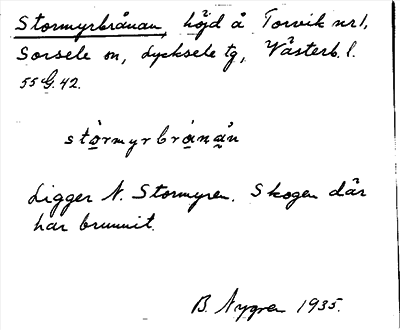 Stormyrbrånan, höjd å Torvik nr 1,
Sorsele sn, Lycksele tg, Västerb. l.
55 G. 42.
stòrmyrbránàn
Ligger N. Stormyren. Skogen där
har brunnit.
B. Nygren 1935.